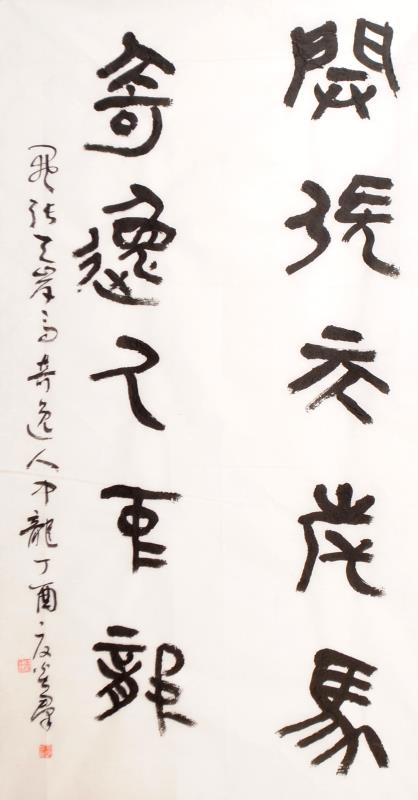 開張天岸馬
奇逸人中龍
開張天岸馬奇逸人中龍丁酉